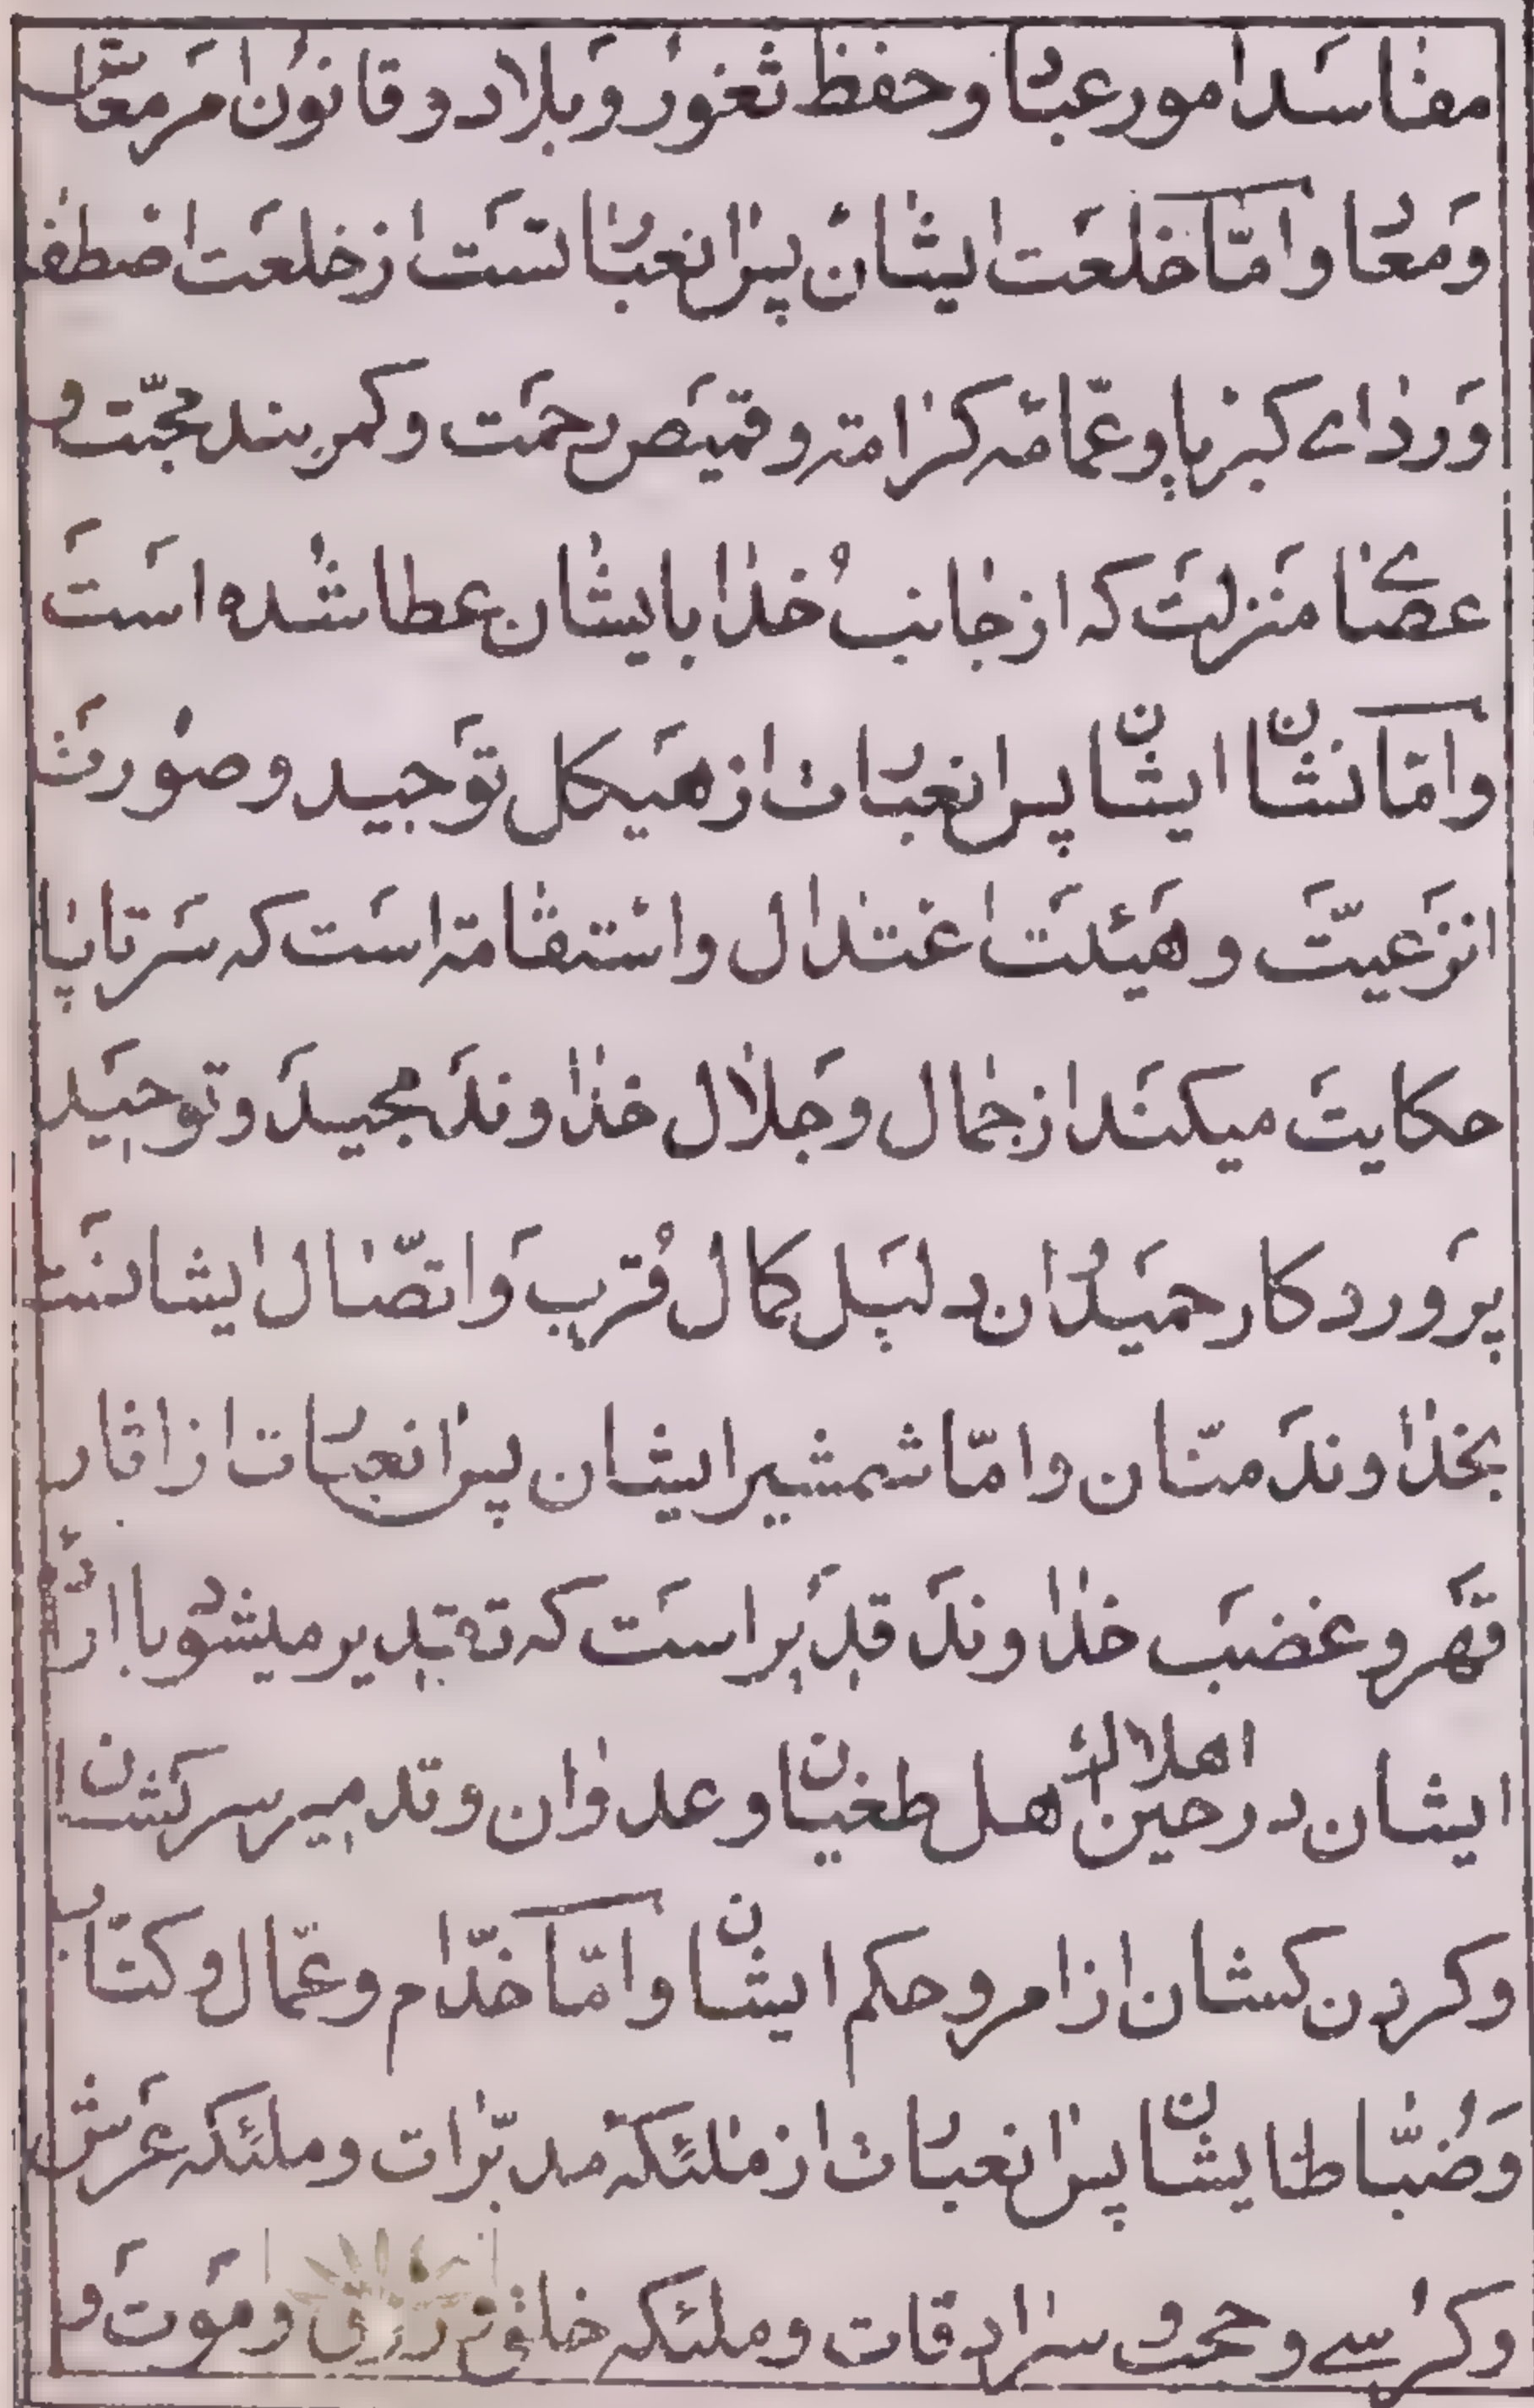 مفاسد امور عباد و حفظ ثغور و بلاد و قانون امر معاش
و معاد و امّا خلعت ایشان پس انعبارتست از خلعت اصطفا
و ردای کبریا و عمّامه کرامة و قمیص رحمت و کمربند محبّت و
عصای منزلت که از جانب خدا بایشان عطا شده است
و امّا نشان ایشان پس انعبارت از هیکل توحید و صورت
انزعیّت و هیئت اعتدال و استقامة است که سرتاپا
حکایت میکند از جمال و جلال خداوند مجید و توحید
پروردکار حمید و ان دلیل کمال قرب و اتّصال ایشانست
بخداوند منّان و امّا شمشیر ایشان پس انعبارت از اثار
قهر و غضب خداوند قدیر است که تقدیر میشود با اراده
ایشان در حین اهلاک اهل طغیان و عدوان و تدمیر سرکشان
و کردن کشان از امر و حکم ایشان و امّا خدّام و عمّال و کتّاب
و ضبّاط ایشان پس انعبارت از ملئکه مدبّرات و ملئکه عرش
و کرسی و حجب و سرادقات و ملئکه خلق و رزق و موت و